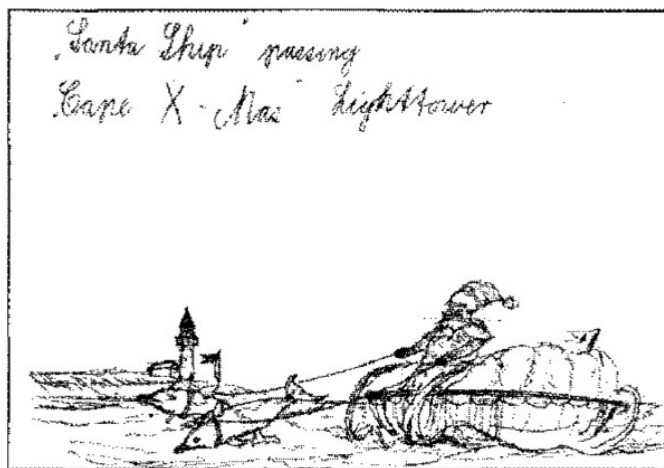 „Santa Ship" passing
„Cape X-Mas" Lighttower